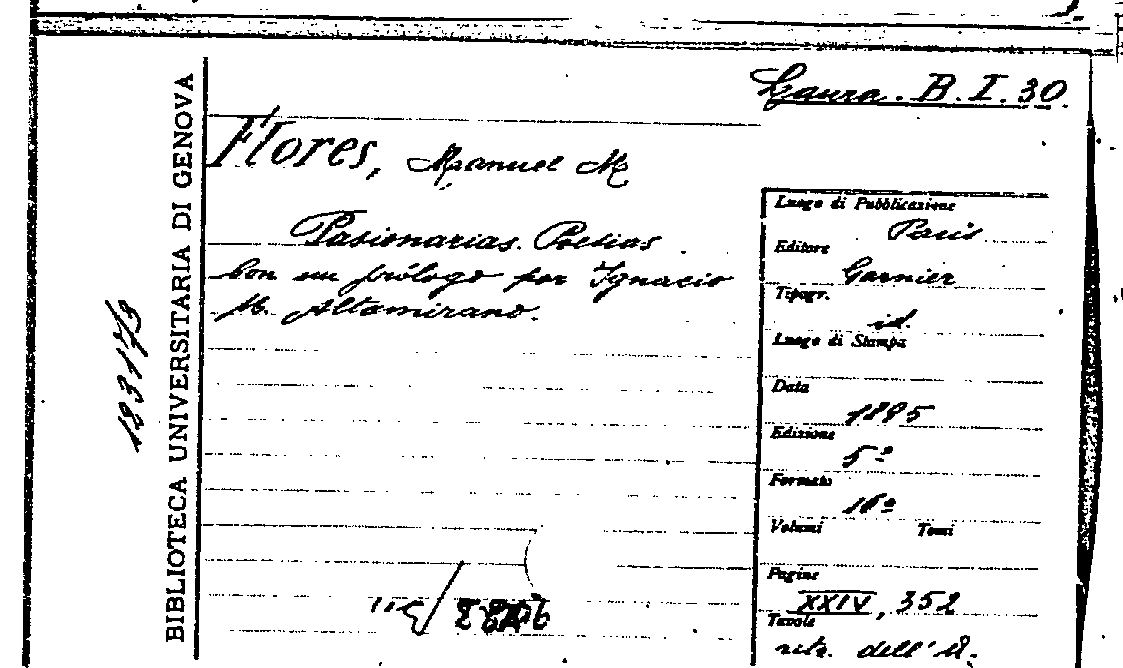 Gaura. B. I. 30
Flores, Manuel M
Pasionarias. Poesias
Con un prólogo por Ignacio
M. Altamirano.
Luogo di Pubblicazione
Paris
Editore
Garnier
Tipogr.
id.
Luogo di Stampa
Data
Edizione
5ª
Formato
16º
Volumi Tomi
Pagine
XXIV, 352
Tavole
ritr. dell'A.
BIBLIOTECA UNIVERSITARIA DI GENOVA